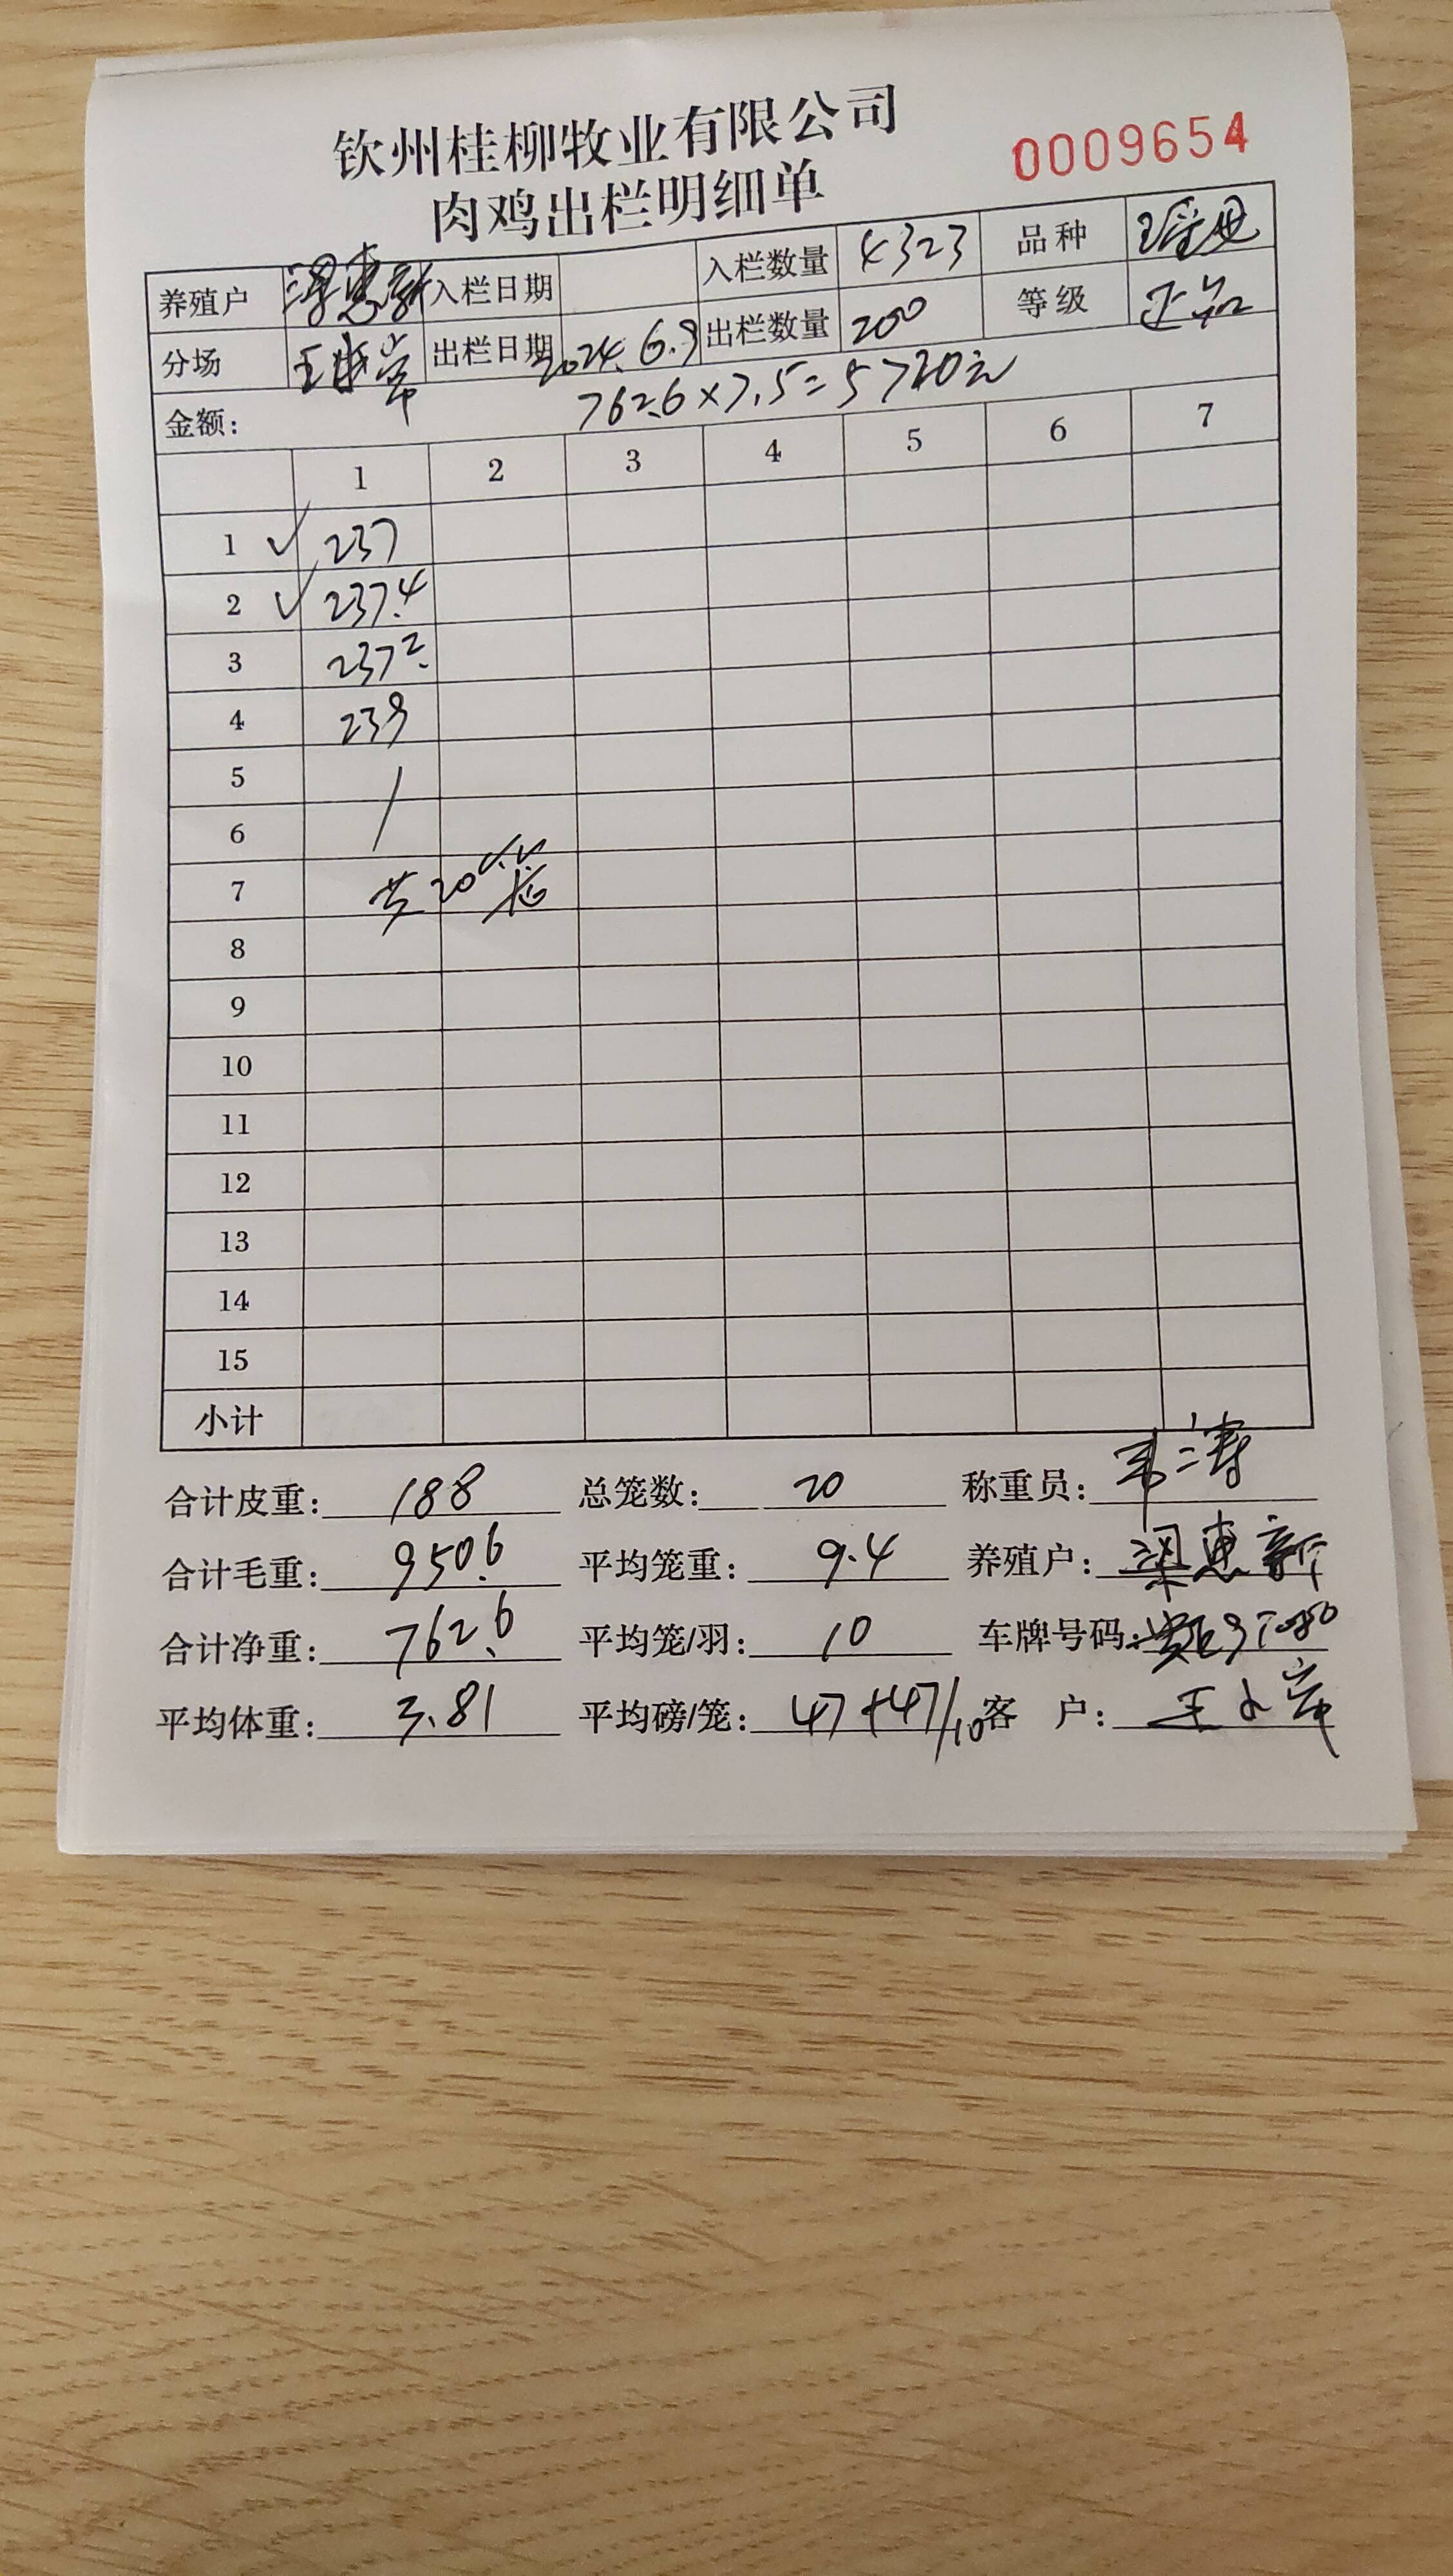 钦州桂柳牧业有限公司
0009654
肉鸡出栏明细单
养殖户 梁惠新 入栏日期 入栏数量 4323 品种
分场 出栏日期 2024.6.9 出栏数量 200 等级 正品
金额: 762.6×7.5=5720元
1 2 3 4 5 6 7
1 ✓ 237
2 ✓ 237.4
3 237.2
4 239
5
6
7 共20
8
9
10
11
12
13
14
15
小计
合计皮重: 188 总笼数: 20 称重员:
合计毛重: 950.6 平均笼重: 9.4 养殖户: 梁惠新
合计净重: 762.6 平均笼/羽: 10 车牌号码:
平均体重: 3.81 平均磅/笼: 47+47/10 客 户: